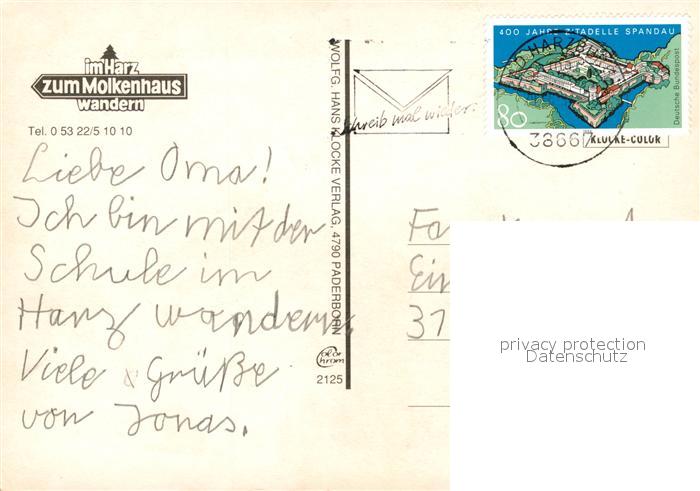 im Harz
zum Molkenhaus
wandern
Tel. 0 53 22/5 10 10
Liebe Oma!
Ich bin mit der
Schule im
Harz wandern.
Viele Grüße
von Jonas.
WOLFG. HANS KLOCKE VERLAG, 4790 PADERBORN
2125
Schreib mal wieder!
400 JAHRE ZITADELLE SPANDAU
Deutsche Bundespost
80
38667
KLOCKE-COLOR
37
privacy protection
Datenschutz